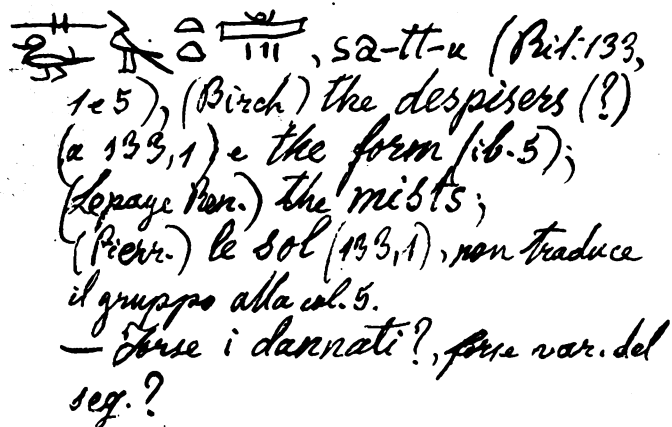 , sa-tt-u (Rit. 133,
1 e 5), (Birch) the despisers (?)
(a 133,1) e the form (ib. 5);
(Lepage Ren.) the mists;
(Pierr.) le sol (133,1), non traduce
il gruppo alla col. 5.
— Forse i dannati?, forse var. del
seg.?